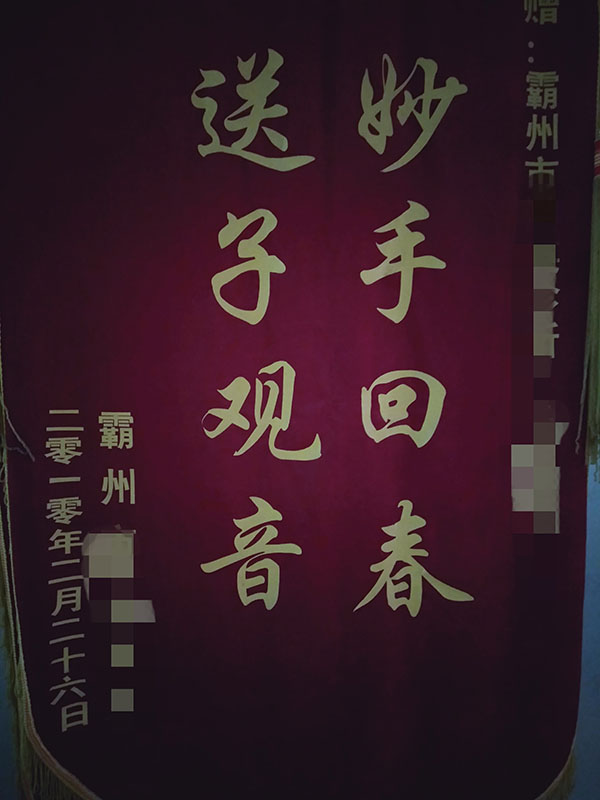 赠：霸州市
妙手回春
送子观音
霸州
二零一零年二月二十六日